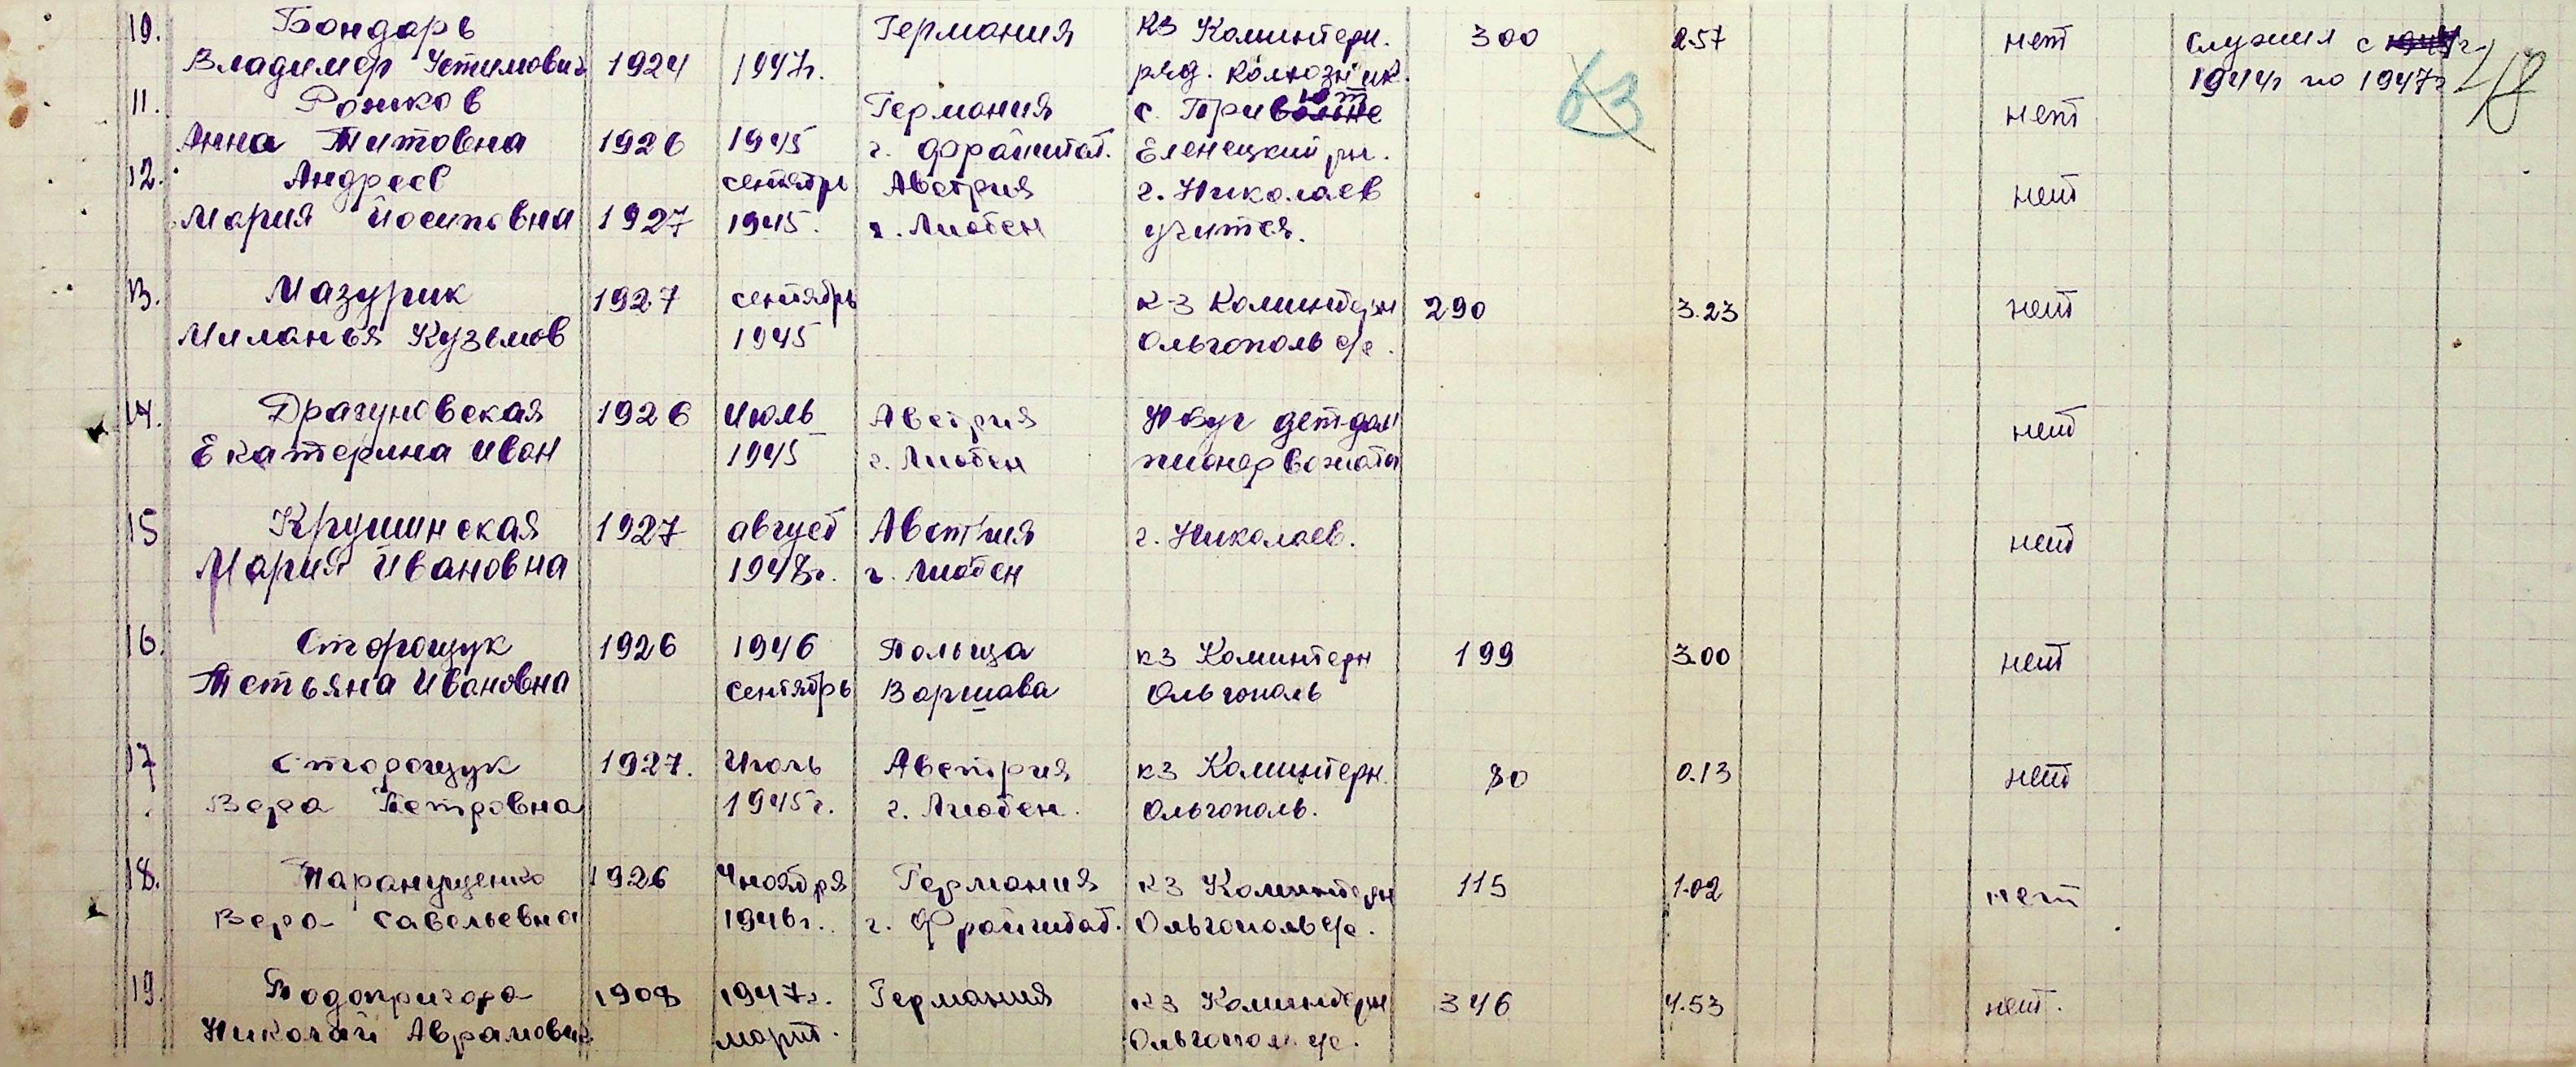 10. Бондарь Германия КЗ Коминтерн. 300 2.57 нет служил с
Владимер Устимович 1924 1947г. ряд. колхозник. 1944г по 1947г
11. Рожков Германия с. При нет
Анна Титовна 1926 1945 г. Фрайштат. Еленецкий рн.
63
12. Андреев сентябрь Австрия г. Николаев нет
Мария Йосиповна 1927 1945. г. Лиобен учится.
13. Мазурик 1927 сентябрь к-з Коминтерн 290 3.23 нет
Миланья Кузьмов 1945 Ольгополь с/с.
14. Драгуновская 1926 Июль Австрия детдом нет
Екатерина Иван 1945 г. Лиобен пионервожата
15 Крушинская 1927 август Австрия г. Николаев. нет
Мария Ивановна 1948г. г. Лиобен
16. Сторощук 1926 1946 Польща кз Коминтерн 199 3.00 нет
Тетьяна Ивановна сентябрь Варшава Ольгополь
17 Сторощук 1927. Июль Австрия кз Коминтерн. 80 0.13 нет
Вера Петровна 1945г. г. Лиобен. Ольгополь.
18. Паранущенко 1926 4 ноября Германия кз Коминтерн 115 1.02 нет
Вера Савельевна 1946г. г. Фрайштат. Ольгополь с/с.
19. Подопригора 1908 1947г. Германия кз Коминтерн 346 4.53 нет.
Николай Аврамович март. Ольгопол с/с.